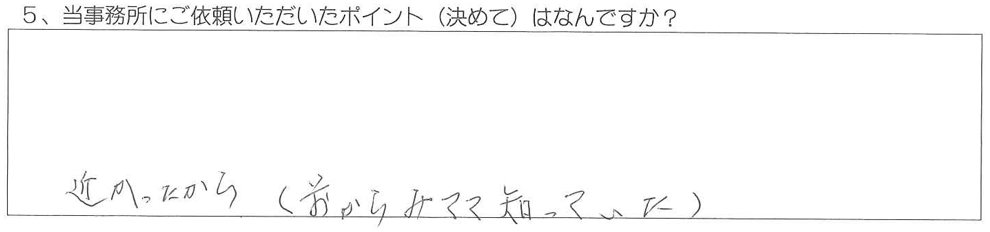 ５、当事務所にご依頼いただいたポイント（決めて）はなんですか？
近かったから（前からみてて知っていた）